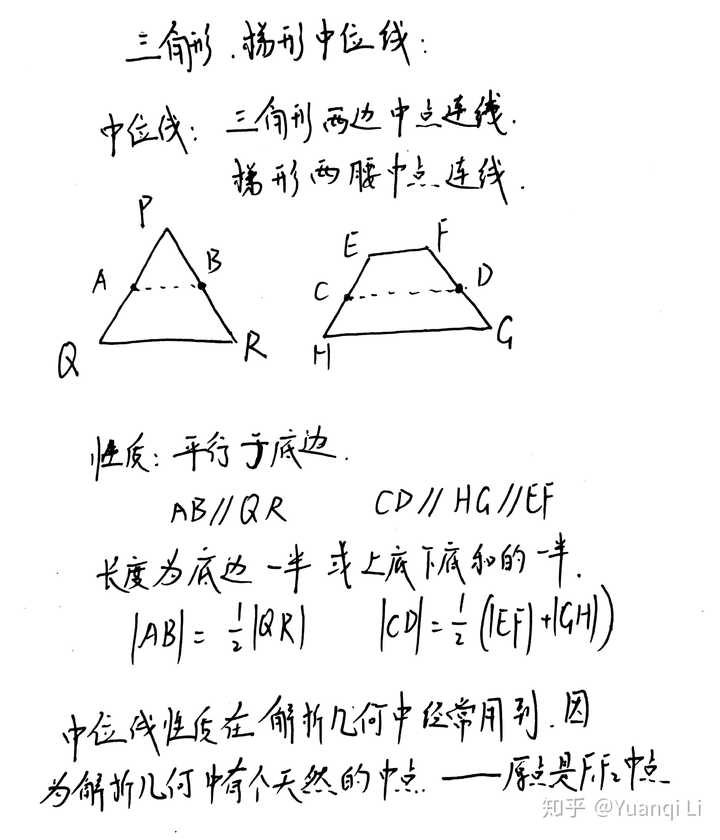 三角形、梯形中位线：
中位线：三角形两边中点连线.
梯形两腰中点连线.
P
A B
Q R
E F
C D
H G
性质：平行于底边.
AB//QR CD//HG//EF
长度为底边一半 或上底下底和的一半.
|AB|=1/2|QR| |CD|=1/2(|EF|+|GH|)
中位线性质在解析几何中经常用到.因
为解析几何中有个天然的中点——原点是F₁F₂中点
知乎 @Yuanqi Li